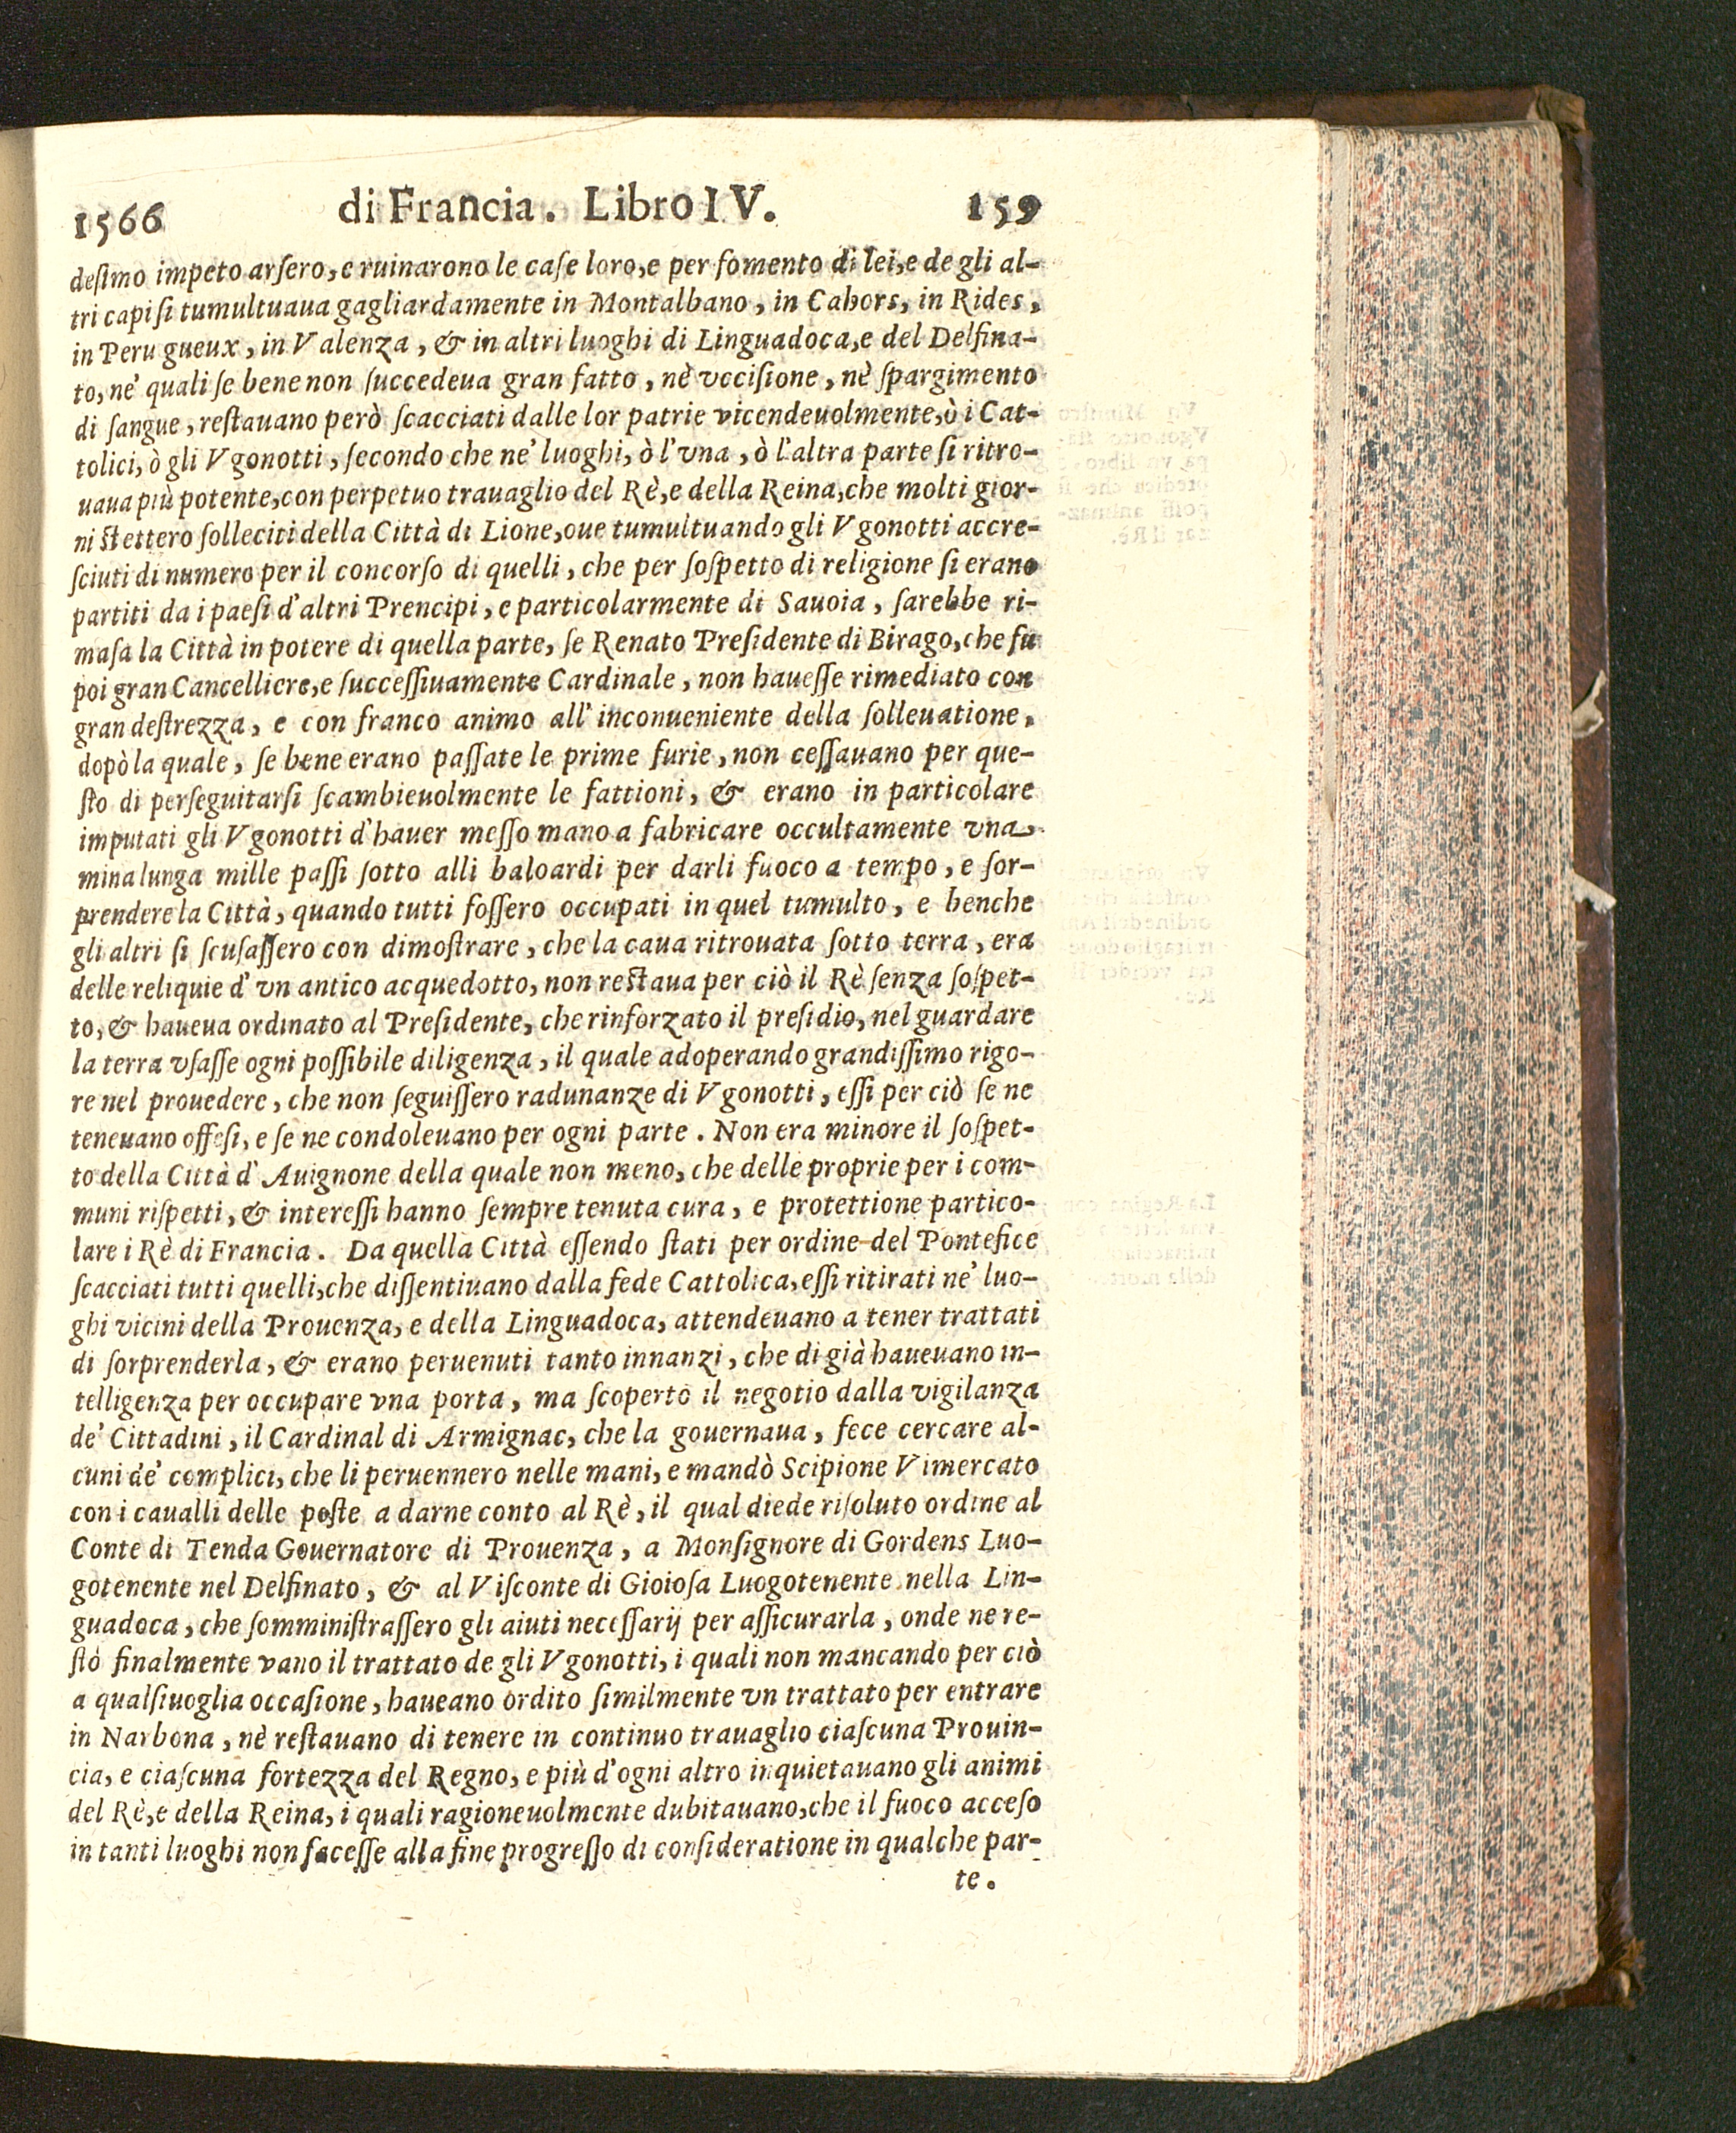 1566 di Francia. Libro IV. 159
deſimo impeto arſero, e ruinarono le caſe loro, e per fomento di lei, e de gli al-
tri capi ſi tumultuaua gagliardamente in Montalbano, in Cahors, in Rides,
in Perugueux, in Valenza, & in altri luoghi di Linguadoca, e del Delfina-
to, ne' quali ſe bene non ſuccedeua gran fatto, nè vcciſione, nè ſpargimento
di ſangue, reſtauano però ſcacciati dalle lor patrie vicendeuolmente, ò i Cat-
tolici, ò gli Vgonotti, ſecondo che ne' luoghi, ò l'vna, ò l'altra parte ſi ritro-
uaua più potente, con perpetuo trauaglio del Rè, e della Reina, che molti gior-
ni ſtettero ſolleciti della Città di Lione, oue tumultuando gli Vgonotti accre-
ſciuti di numero per il concorſo di quelli, che per ſoſpetto di religione ſi erano
partiti da i paeſi d'altri Prencipi, e particolarmente di Sauoia, ſarebbe ri-
maſa la Città in potere di quella parte, ſe Renato Preſidente di Birago, che fu
poi gran Cancelliere, e ſucceſſiuamente Cardinale, non haueſſe rimediato con
gran deſtrezza, e con franco animo all'inconueniente della ſolleuatione,
dopò la quale, ſe bene erano paſſate le prime furie, non ceſſauano per que-
ſto di perſeguitarſi ſcambieuolmente le fattioni, & erano in particolare
imputati gli Vgonotti d'hauer meſſo mano a fabricare occultamente vna
mina lunga mille paſſi ſotto alli baloardi per darli fuoco a tempo, e ſor-
prendere la Città, quando tutti foſſero occupati in quel tumulto, e benche
gli altri ſi ſcuſaſſero con dimoſtrare, che la caua ritrouata ſotto terra, era
delle reliquie d'vn antico acquedotto, non reſtaua per ciò il Rè ſenza ſoſpet-
to, & haueua ordinato al Preſidente, che rinforzato il preſidio, nel guardare
la terra vſaſſe ogni poſſibile diligenza, il quale adoperando grandiſſimo rigo-
re nel prouedere, che non ſeguiſſero radunanze di Vgonotti, eſſi per ciò ſe ne
teneuano offeſi, e ſe ne condoleuano per ogni parte. Non era minore il ſoſpet-
to della Città d'Auignone della quale non meno, che delle proprie per i com-
muni riſpetti, & intereſſi hanno ſempre tenuta cura, e protettione partico-
lare i Rè di Francia. Da quella Città eſſendo ſtati per ordine del Pontefice
ſcacciati tutti quelli, che diſſentiuano dalla fede Cattolica, eſſi ritirati ne' luo-
ghi vicini della Prouenza, e della Linguadoca, attendeuano a tener trattati
di ſorprenderla, & erano peruenuti tanto innanzi, che di già haueuano in-
telligenza per occupare vna porta, ma ſcoperto il negotio dalla vigilanza
de' Cittadini, il Cardinal di Armignac, che la gouernaua, fece cercare al-
cuni de' complici, che li peruennero nelle mani, e mandò Scipione Vimercato
con i caualli delle poſte a darne conto al Rè, il qual diede riſoluto ordine al
Conte di Tenda Gouernatore di Prouenza, a Monſignore di Gordens Luo-
gotenente nel Delfinato, & al Viſconte di Gioioſa Luogotenente nella Lin-
guadoca, che ſomminiſtraſſero gli aiuti neceſſarij per aſſicurarla, onde ne re-
ſtò finalmente vano il trattato de gli Vgonotti, i quali non mancando per ciò
a qualſiuoglia occaſione, haueano ordito ſimilmente vn trattato per entrare
in Narbona, nè reſtauano di tenere in continuo trauaglio ciaſcuna Prouin-
cia, e ciaſcuna fortezza del Regno, e più d'ogni altro inquietauano gli animi
del Rè, e della Reina, i quali ragioneuolmente dubitauano, che il fuoco acceſo
in tanti luoghi non faceſſe alla fine progreſſo di conſideratione in qualche par-
te.